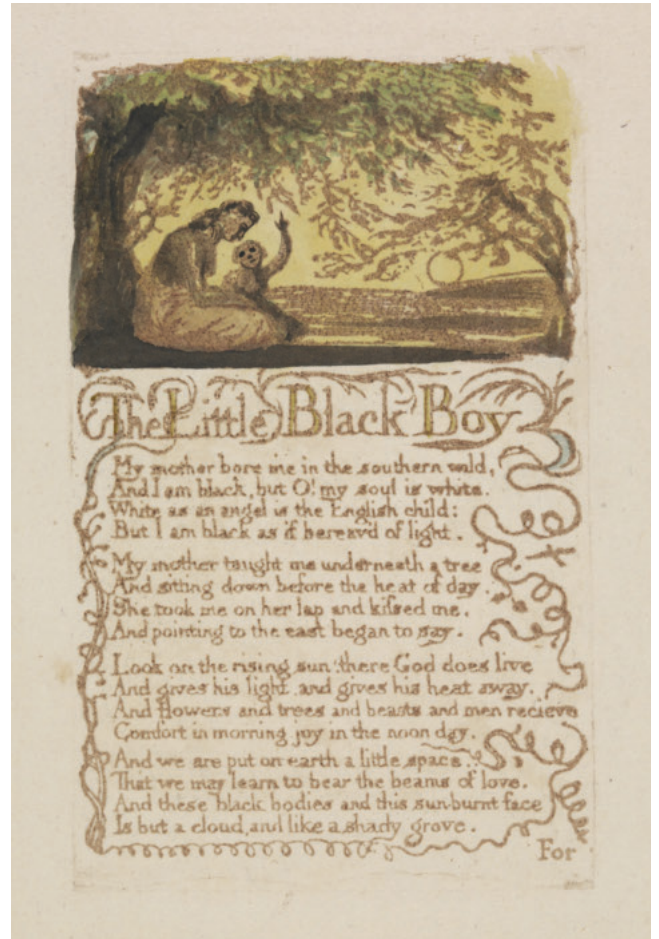 The Little Black Boy
My mother bore me in the southern wild,
And I am black, but O! my soul is white.
White as an angel is the English child:
But I am black as if bereav'd of light.
My mother taught me underneath a tree
And sitting down before the heat of day.
She took me on her lap and kifsed me.
And pointing to the east began to say.
Look on the rising sun: there God does live
And gives his light, and gives his heat away.
And flowers and trees and beasts and men recieve
Comfort in morning joy in the noon day.
And we are put on earth a little space.
That we may learn to bear the beams of love.
And these black bodies and this sun-burnt face
Is but a cloud, and like a shady grove.
For